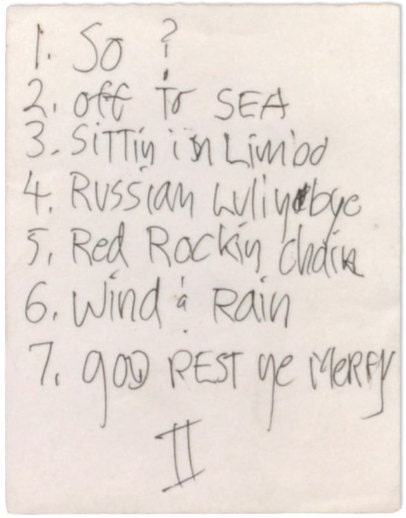 1. So ?
2. off to SEA
3. Sittin in Limbo
4. Russian Lullyebye
5. Red Rockin Chair
6. Wind & Rain
7. God REST ye MERRY
II